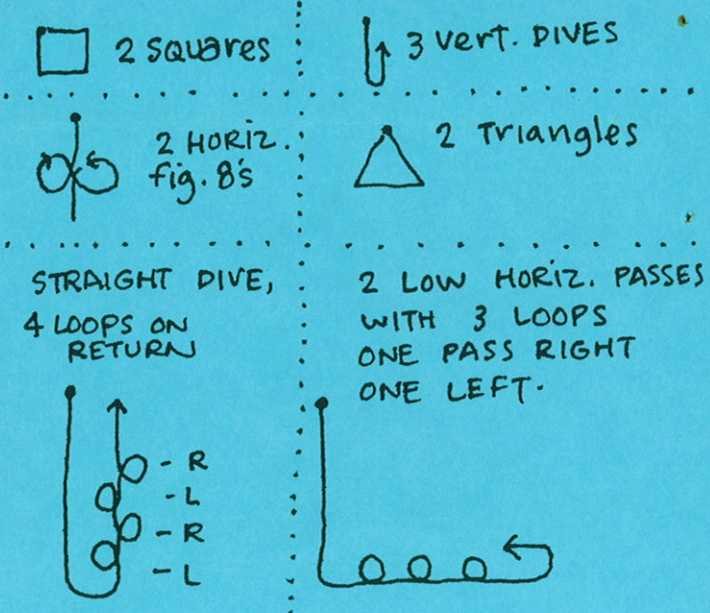 2 squares
3 vert. DIVES
2 HORIZ.
fig. 8's
2 Triangles
STRAIGHT DIVE,
4 LOOPS ON
RETURN
- R
- L
- R
- L
2 LOW HORIZ. PASSES
WITH 3 LOOPS
ONE PASS RIGHT
ONE LEFT.